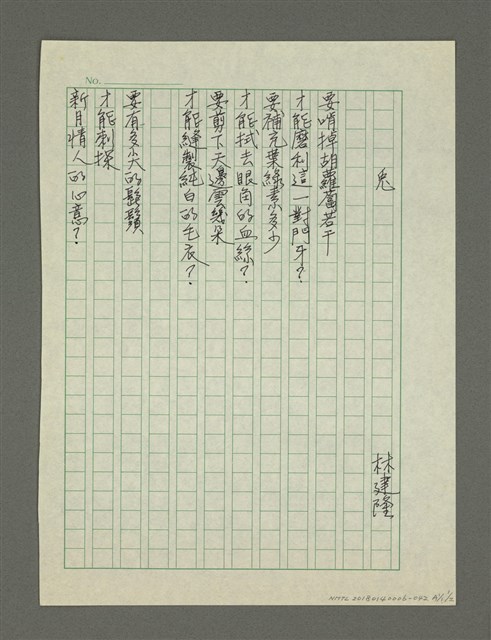 No.
兔
林建隆
要啃掉胡蘿蔔若干
才能磨利這一對門牙?
要補充葉綠素多少
才能拭去眼角的血絲?
要剪下天邊雲幾朵
才能縫製純白的毛衣?
要有多尖的鬍鬚
才能刺探
新月情人的心意?
NMTL 20180140005-042